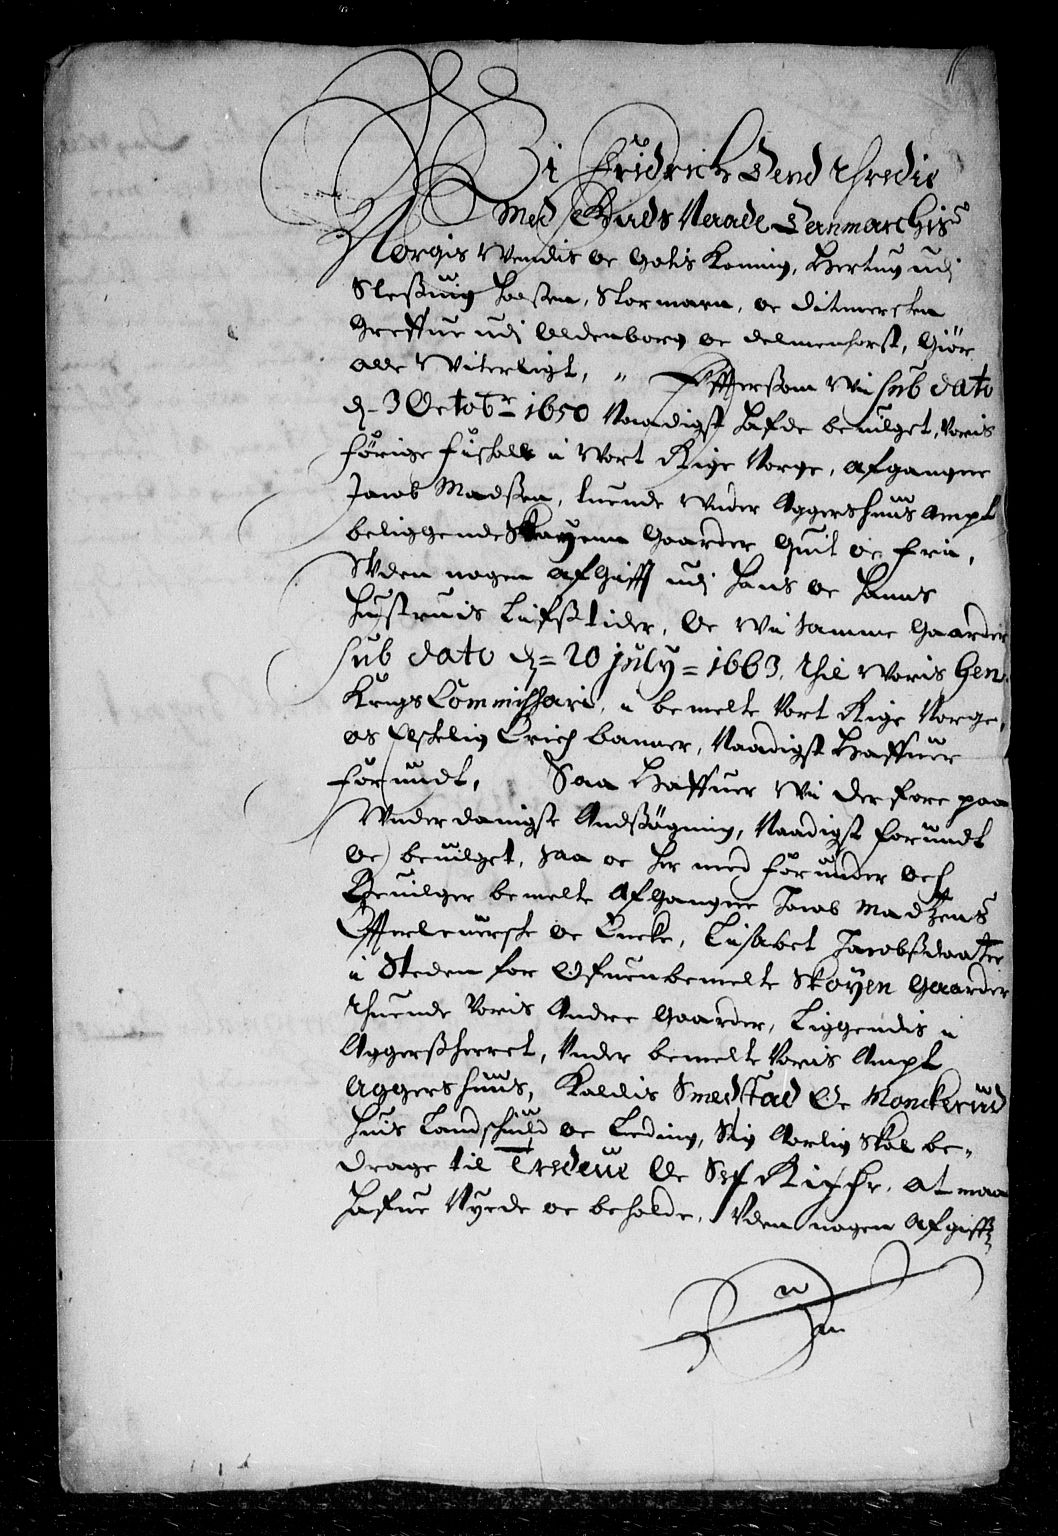 Wi Fridrich Dend thredie
Med Guds Naade Danmarchis
Norgis Wendis oc Gotis Koning, Hertug udj
Sleßuig Holsten, Stormarn, oc Ditmersken
Greffue udj Oldenborg oc Delmenhorst, Giör
alle Witerligt, Effterßom Wii sub dato
d. 3 Octobr 1650 Naadigst hafde beuilget, Voris
förige fiskall i Wort Rige Norge, afgangne
Jacob Madßen, tuende Under Aggershuus Ampt
beliggende Skøyenn Gaarder Quit oc frii,
Uden nogen afgifft udj hans oc hanns
hustruis Liifßtider, Oc Wii samme Gaarder
sub dato d= 20 July = 1663, thil Woris Gen.
Krigs Commissari, i bemelte Vort Rige Norge,
os Elskelig Erich Banner, Naadigst Haffuer
forundt, Saa Haffuer Wii der fore paa
Underdanigste Andßögning, Naadigst forundt
oc beuilget, saa oc her med forunder och
Beuilger bemelte afgangne Jacob Madtzens
Effterleuerske oc Encke, Lisabet Jacobßdaatter
i Steden for Ofuenbemelte Skøyen Gaarder
thuende Voris Andre Gaarder, Liggendis i
Aggerßherret, Under bemelte Voris Ampt
Aggershuus, Kaldis Smedstad Oc Monckerud
huis Landschuld oc Leding, sig Aarlig skal be-
drage til Tredeue Oc Sef Rixdr, at maa
hafue Nyede oc beholde, Uden nogen afgifft